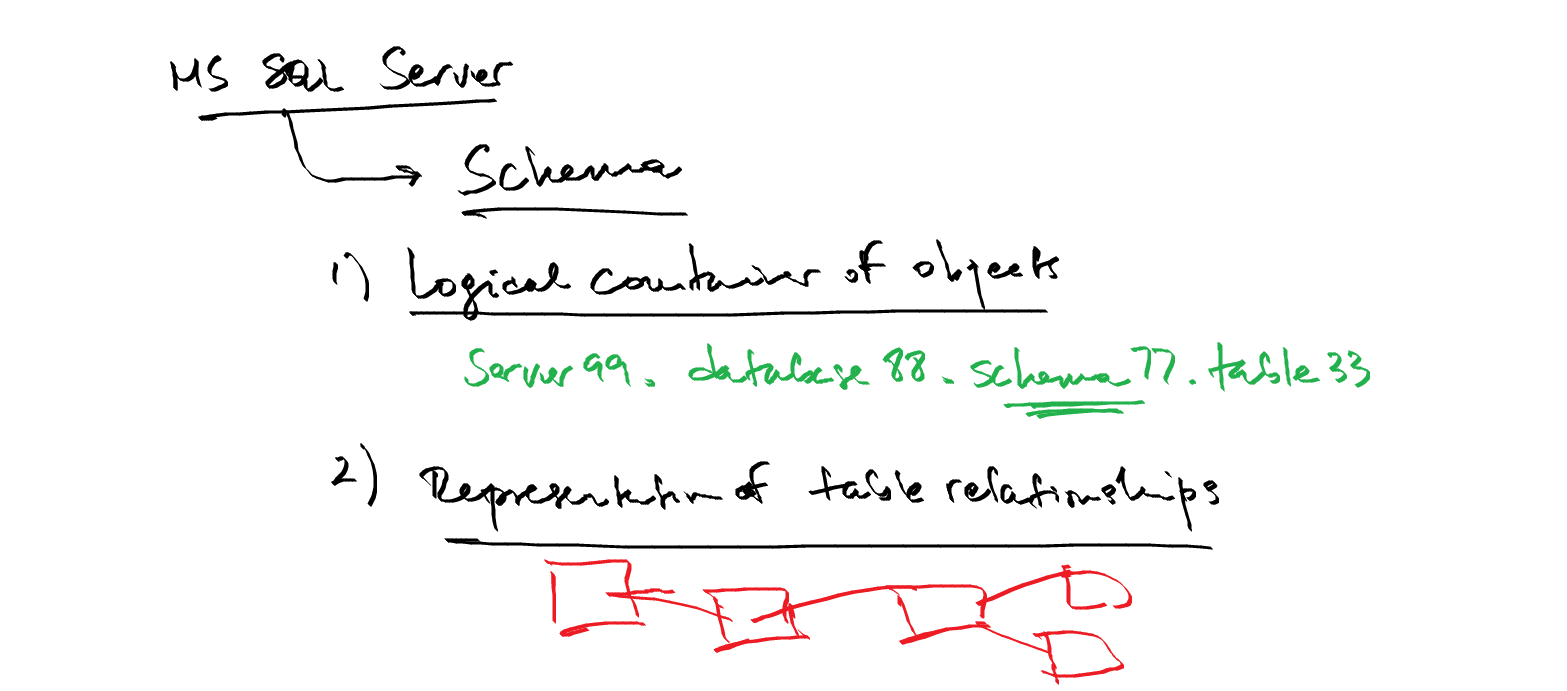 MS SQL Server
Schema
1) Logical container of objects
Server99. database 88. schema77. table33
2) Representation of table relationships